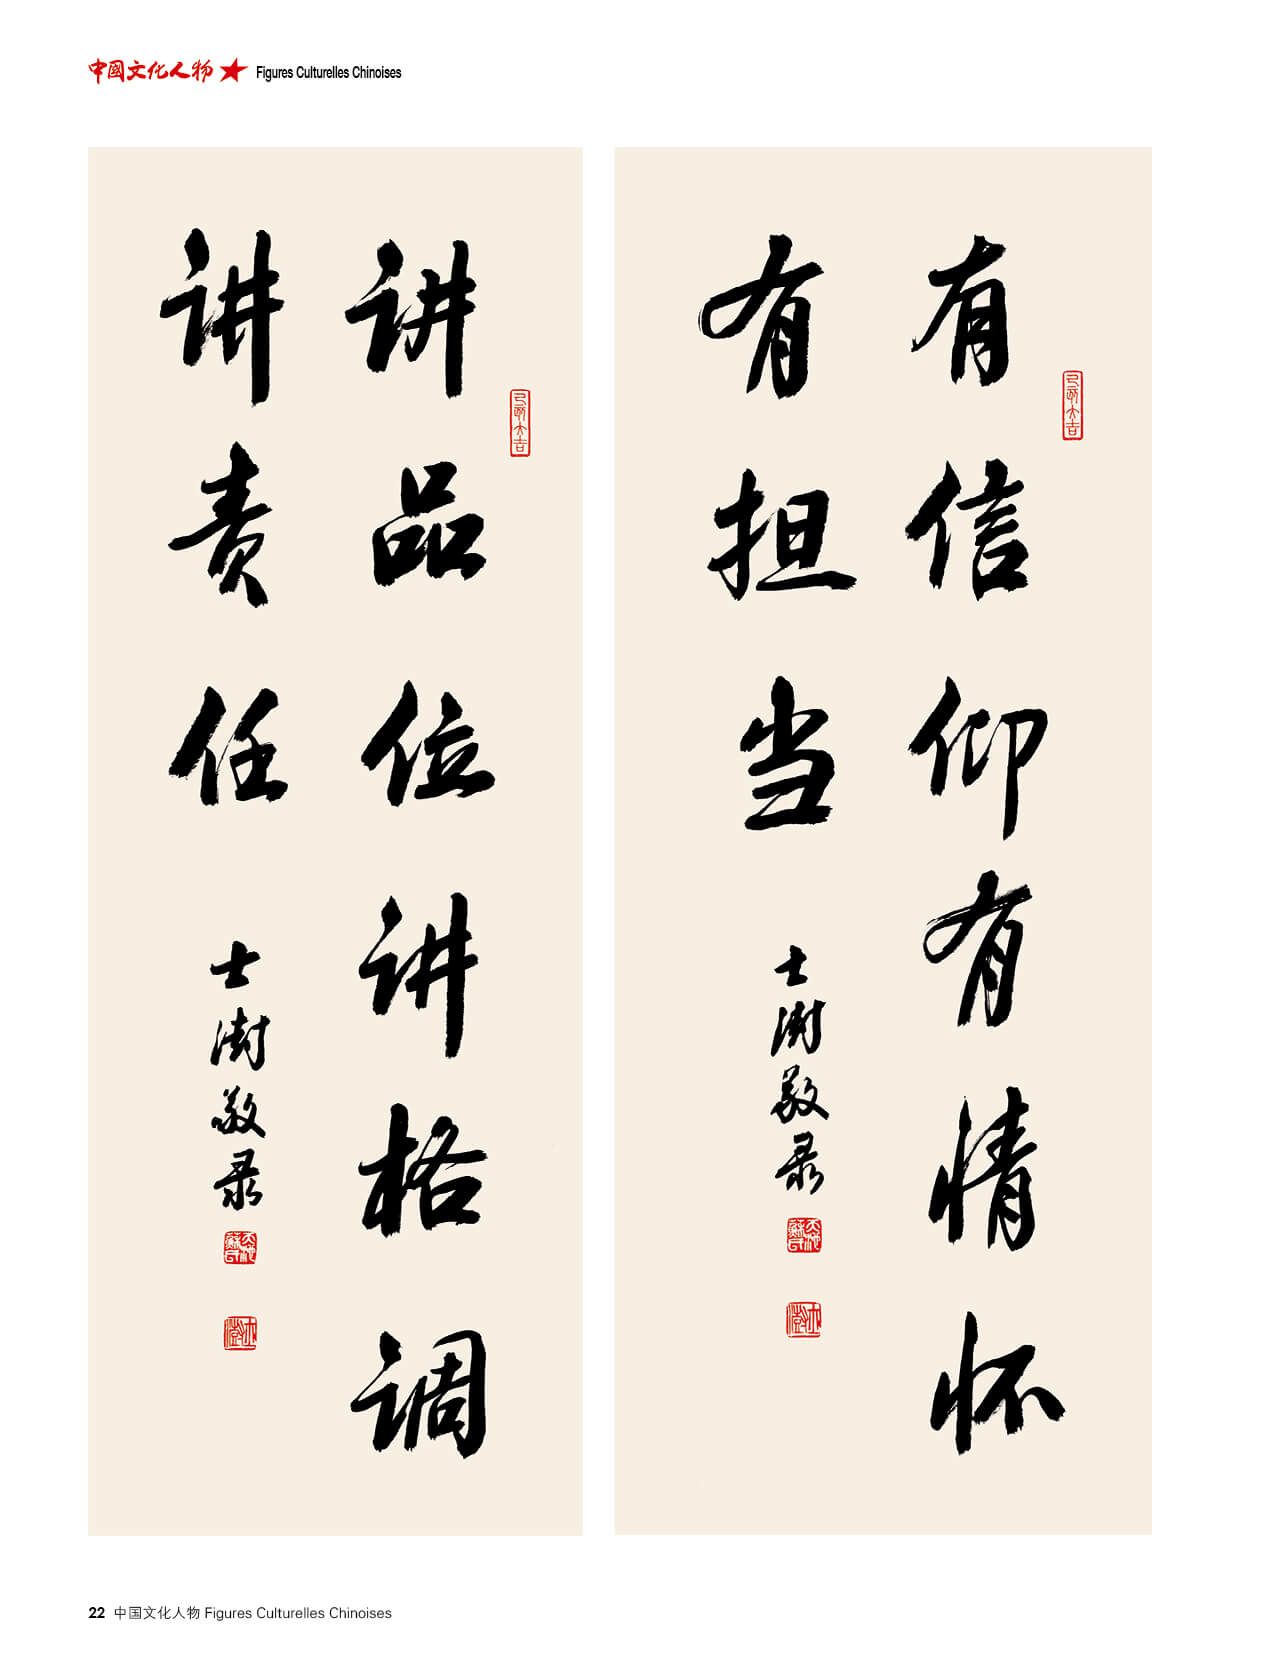 中國文化人物 Figures Culturelles Chinoises
有信仰有情怀
有担当
士澍敬录
己亥大吉
讲品位讲格调
讲责任
士澍敬录
己亥大吉
22 中国文化人物 Figures Culturelles Chinoises